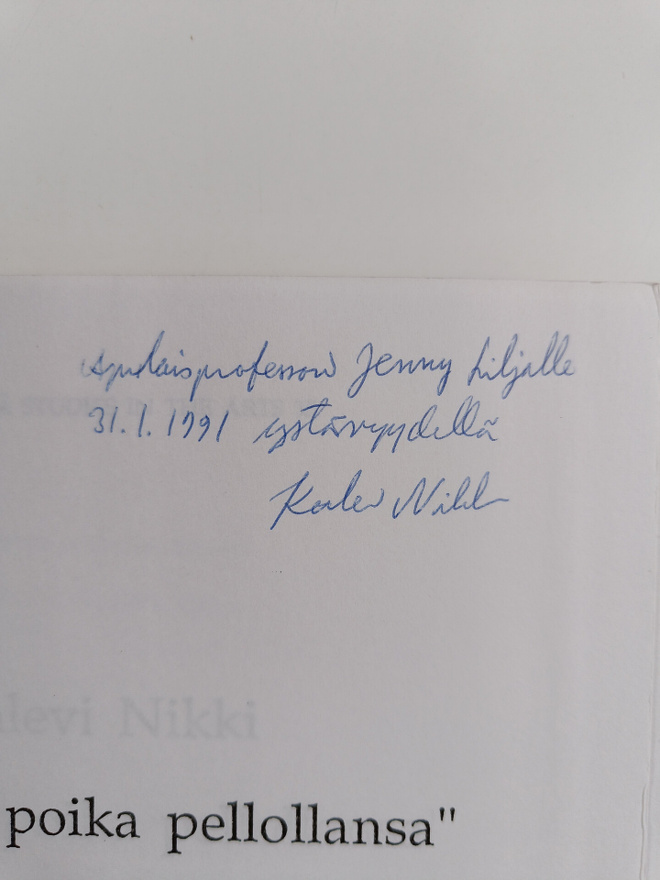 apulaisprofessori Jenny Liljalle
31.1.1991 ystävyydellä
Kalevi Nikki
alevi Nikki
poika pellollansa"